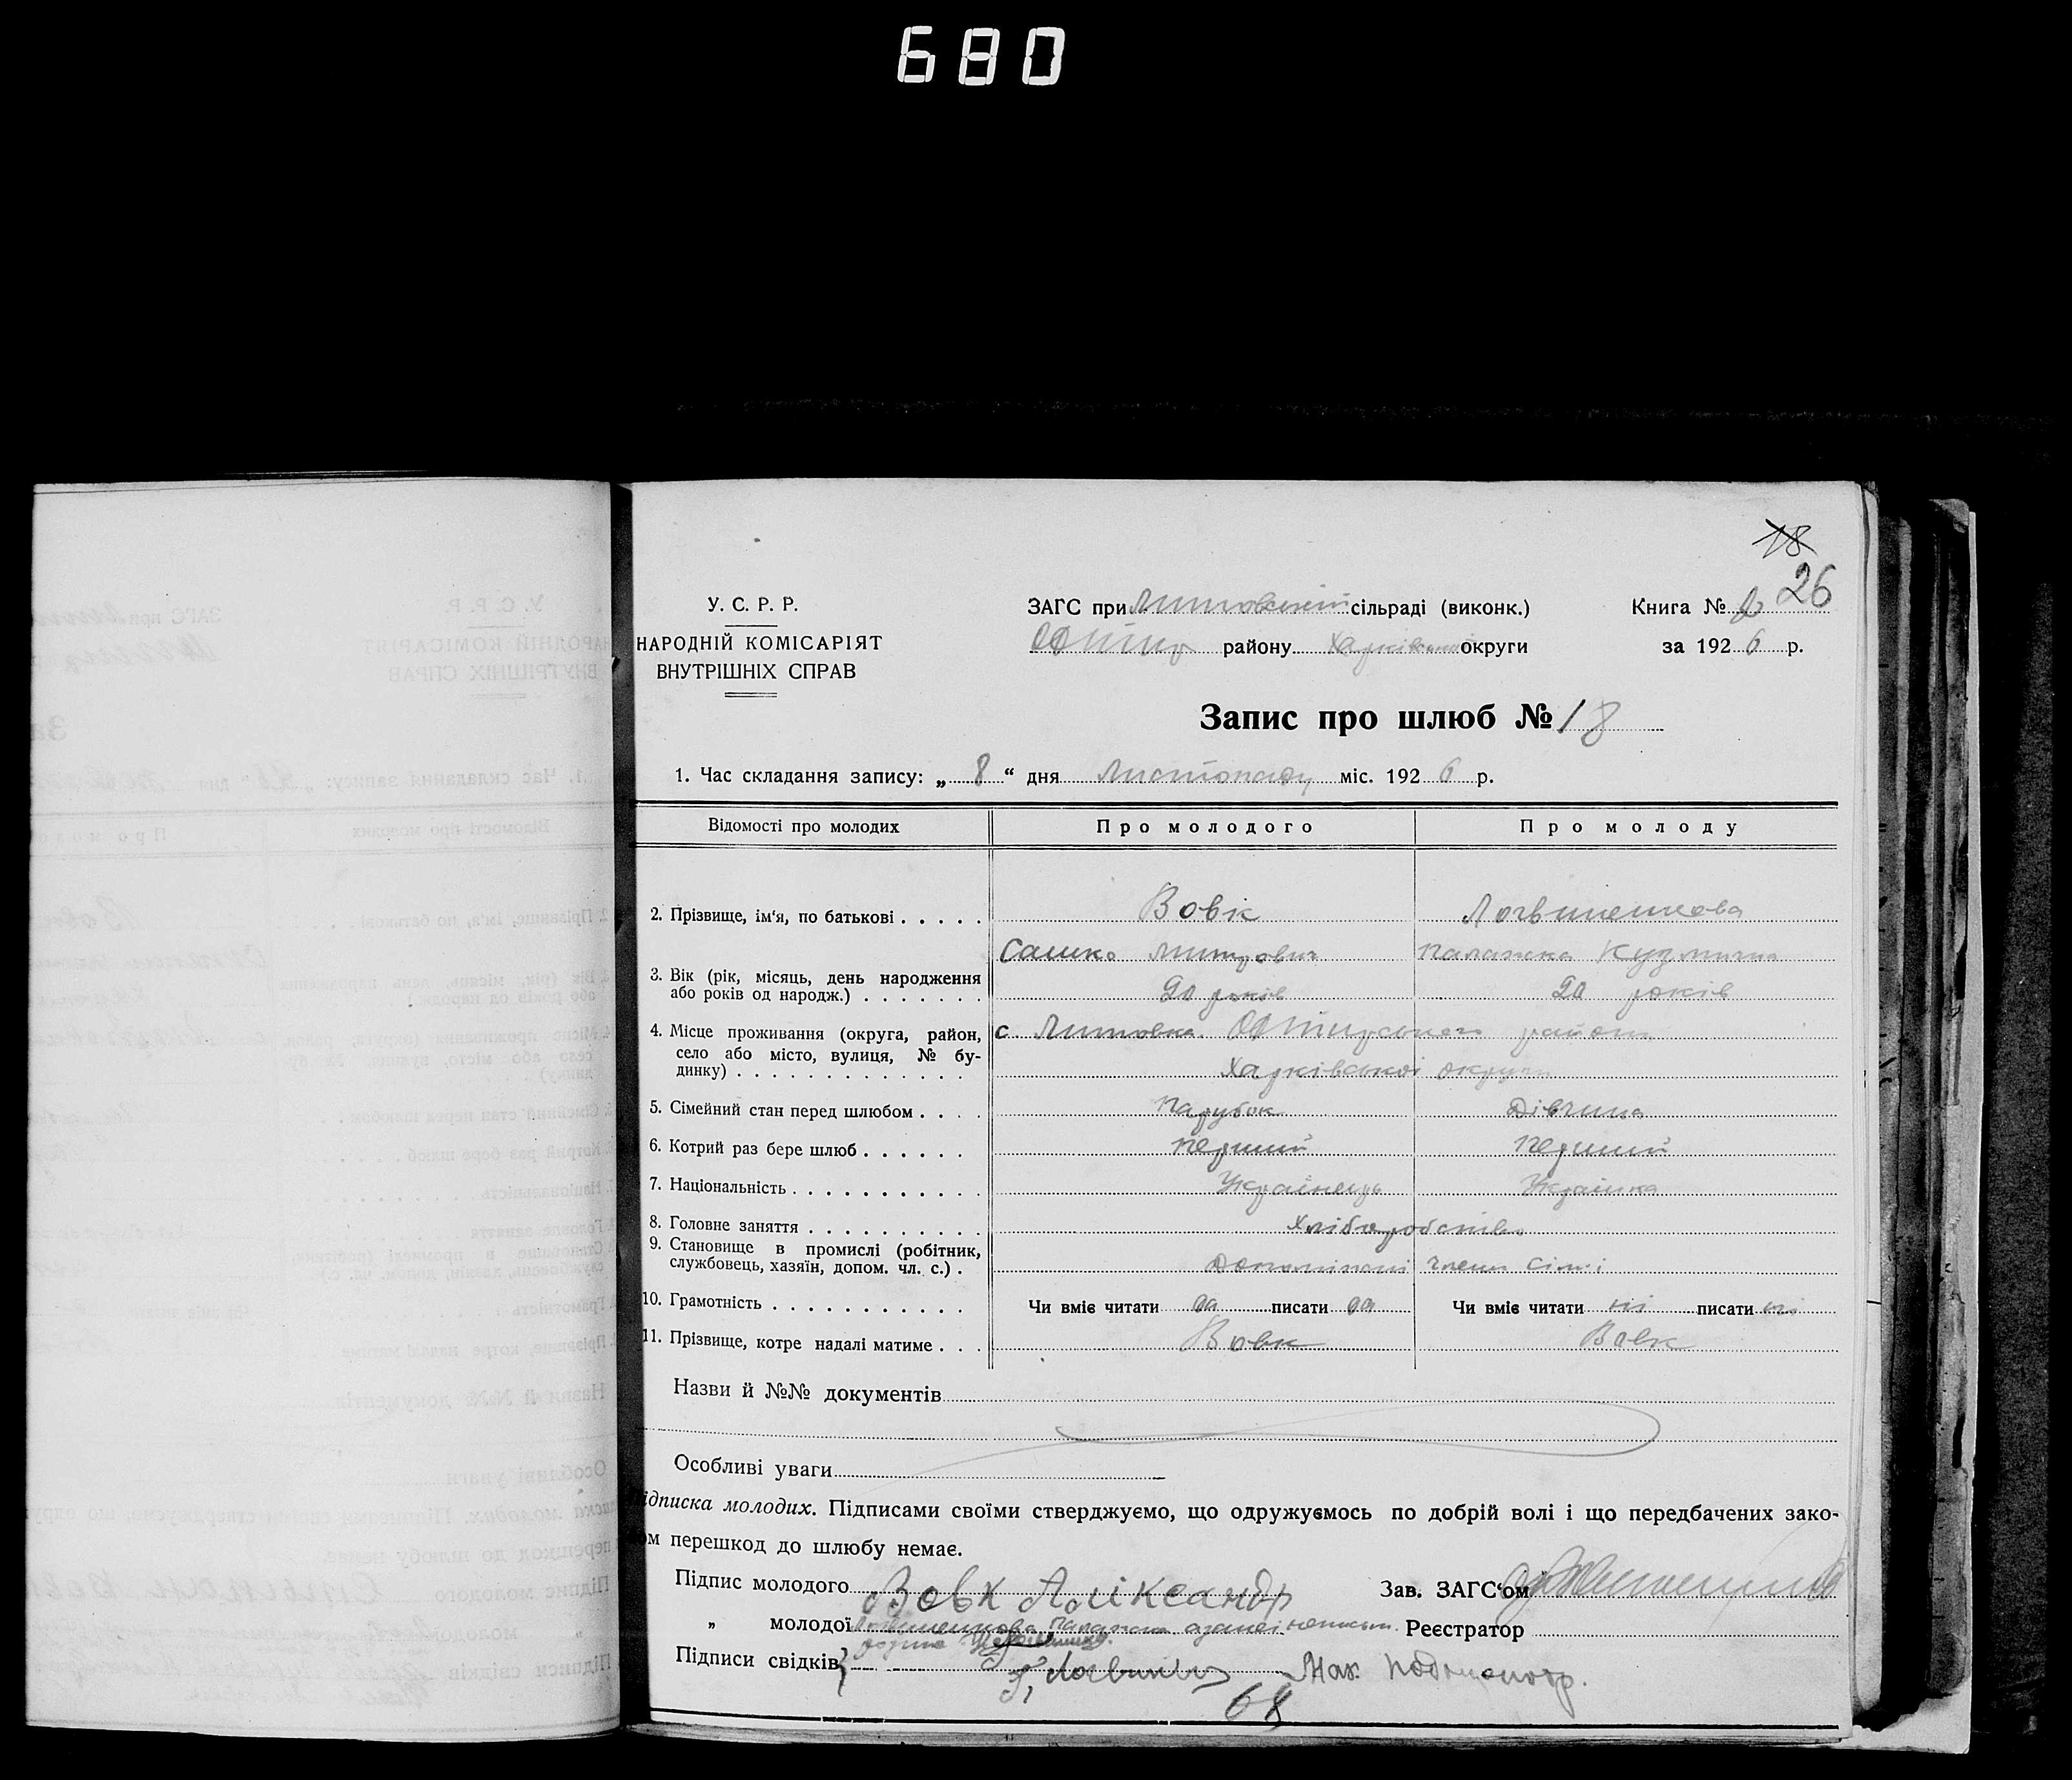 680
18
26
У. С. Р. Р.
НАРОДНІЙ КОМІСАРІЯТ
ВНУТРІШНІХ СПРАВ
ЗАГС при Литовській сільраді (виконк.)
району Харківської округи
Книга №
за 1926 р.
Запис про шлюб № 18
1. Час складання запису: „ 8 “ дня Листопаду міс. 1926 р.
Відомості про молодих
Про молодого
Про молоду
2. Прізвище, ім'я, по батькові . . . . .
Вовк
Логвиненкова
Сашко Митрович
Палажка Кузмична
3. Вік (рік, місяць, день народження
або років од народж.) . . . . . . .
20 років
20 років
4. Місце проживання (округа, район,
село або місто, вулиця, № бу-
динку) . . . . . . . . . . . . .
с. Литовка району
Харківської округи
5. Сімейний стан перед шлюбом . . . .
Парубок
Дівчина
6. Котрий раз бере шлюб . . . . . .
перший
перший
7. Національність . . . . . . . . . . .
Українець
Українка
8. Головне заняття . . . . . . . . . .
Хліборобство
9. Становище в промислі (робітник,
службовець, хазяїн, допом. чл. с.) .
допомічні члени сімі
10. Грамотність . . . . . . . . . . .
Чи вміє читати да писати да
Чи вміє читати ні писати ні
11. Прізвище, котре надалі матиме . . .
Вовк
Вовк
Назви й №№ документів
Особливі уваги
ідписка молодих. Підписами своїми стверджуємо, що одружуємось по добрій волі і що передбачених зако-
ом перешкод до шлюбу немає.
Підпис молодого Вовк Аліксандр
Зав. ЗАГС'ом
„ молодої Логвиненкова Палажка
Реєстратор
Підписи свідків
68